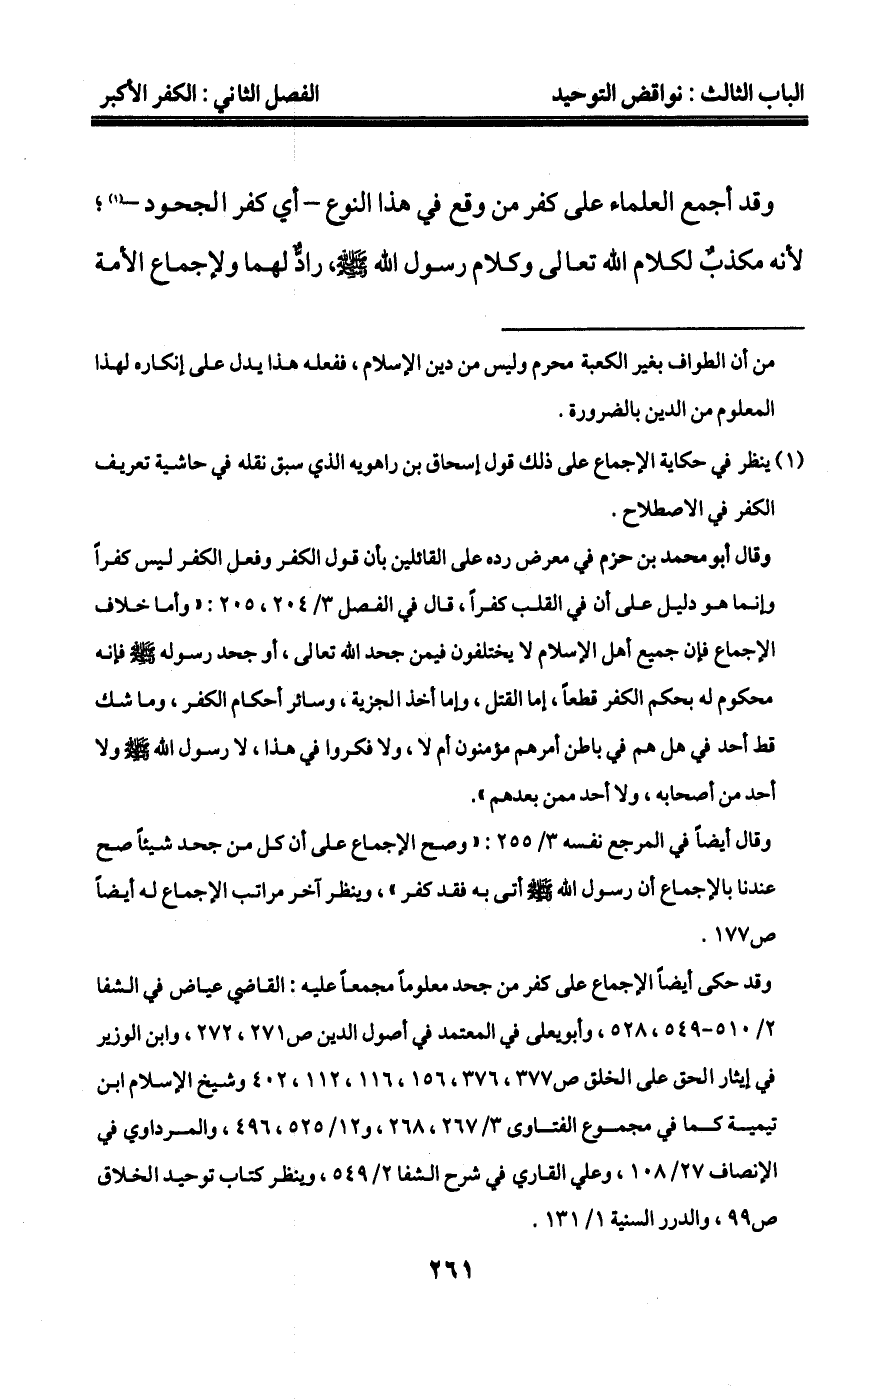 الباب الثالث : نواقض التوحيد
الفصل الثاني : الكفر الأكبر
وقد أجمع العلماء على كفر من وقع في هذا النوع – أي كفر الجحود –(١) ؛
لأنه مكذبٌ لكلام الله تعالى وكلام رسول الله ﷺ، رادٌّ لهما ولإجماع الأمة
من أن الطواف بغير الكعبة محرم وليس من دين الإسلام ، ففعله هذا يدل على إنكاره لهذا
المعلوم من الدين بالضرورة .
(١) ينظر في حكاية الإجماع على ذلك قول إسحاق بن راهويه الذي سبق نقله في حاشية تعريف
الكفر في الاصطلاح .
وقال أبو محمد بن حزم في معرض رده على القائلين بأن قول الكفر وفعل الكفر ليس كفراً
وإنما هو دليل على أن في القلب كفراً ، قال في الفصل ٣/ ٢٠٤ ، ٢٠٥ : « وأما خلاف
الإجماع فإن جميع أهل الإسلام لا يختلفون فيمن جحد الله تعالى ، أو جحد رسوله ﷺ فإنه
محكوم له بحكم الكفر قطعاً ، إما القتل ، وإما أخذ الجزية ، وسائر أحكام الكفر ، وما شك
قط أحد في هل هم في باطن أمرهم مؤمنون أم لا ، ولا فكروا في هذا ، لا رسول الله ﷺ ولا
أحد من أصحابه ، ولا أحد ممن بعدهم ».
وقال أيضاً في المرجع نفسه ٣/ ٢٥٥ : « وصح الإجماع على أن كل من جحد شيئاً صح
عندنا بالإجماع أن رسول الله ﷺ أتى به فقد كفر » ، وينظر آخر مراتب الإجماع له أيضاً
ص١٧٧ .
وقد حكى أيضاً الإجماع على كفر من جحد معلوماً مجمعاً عليه : القاضي عياض في الشفا
٢/ ٥١٠-٥٤٩ ، ٥٢٨ ، وأبويعلى في المعتمد في أصول الدين ص٢٧١ ، ٢٧٢ ، وابن الوزير
في إيثار الحق على الخلق ص٣٧٧ ، ٣٧٦ ، ١٥٦ ، ١١٦ ، ١١٢ ، ٤٠٢ وشيخ الإسلام ابن
تيمية كما في مجموع الفتاوى ٣/ ٢٦٧ ، ٢٦٨ ، و١٢/ ٥٢٥ ، ٤٩٦ ، والمرداوي في
الإنصاف ٢٧/ ١٠٨ ، وعلي القاري في شرح الشفا ٢/ ٥٤٩ ، وينظر كتاب توحيد الخلاق
ص٩٩ ، والدرر السنية ١/ ١٣١ .
٢٦١